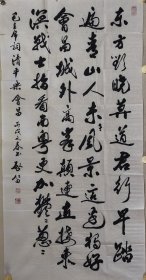 东方欲晓莫道君行早踏
遍青山人未老风景这边独好
会昌城外高峰颠连直接东
溟战士指看南粤更加郁郁葱葱
毛主席词清平乐会昌